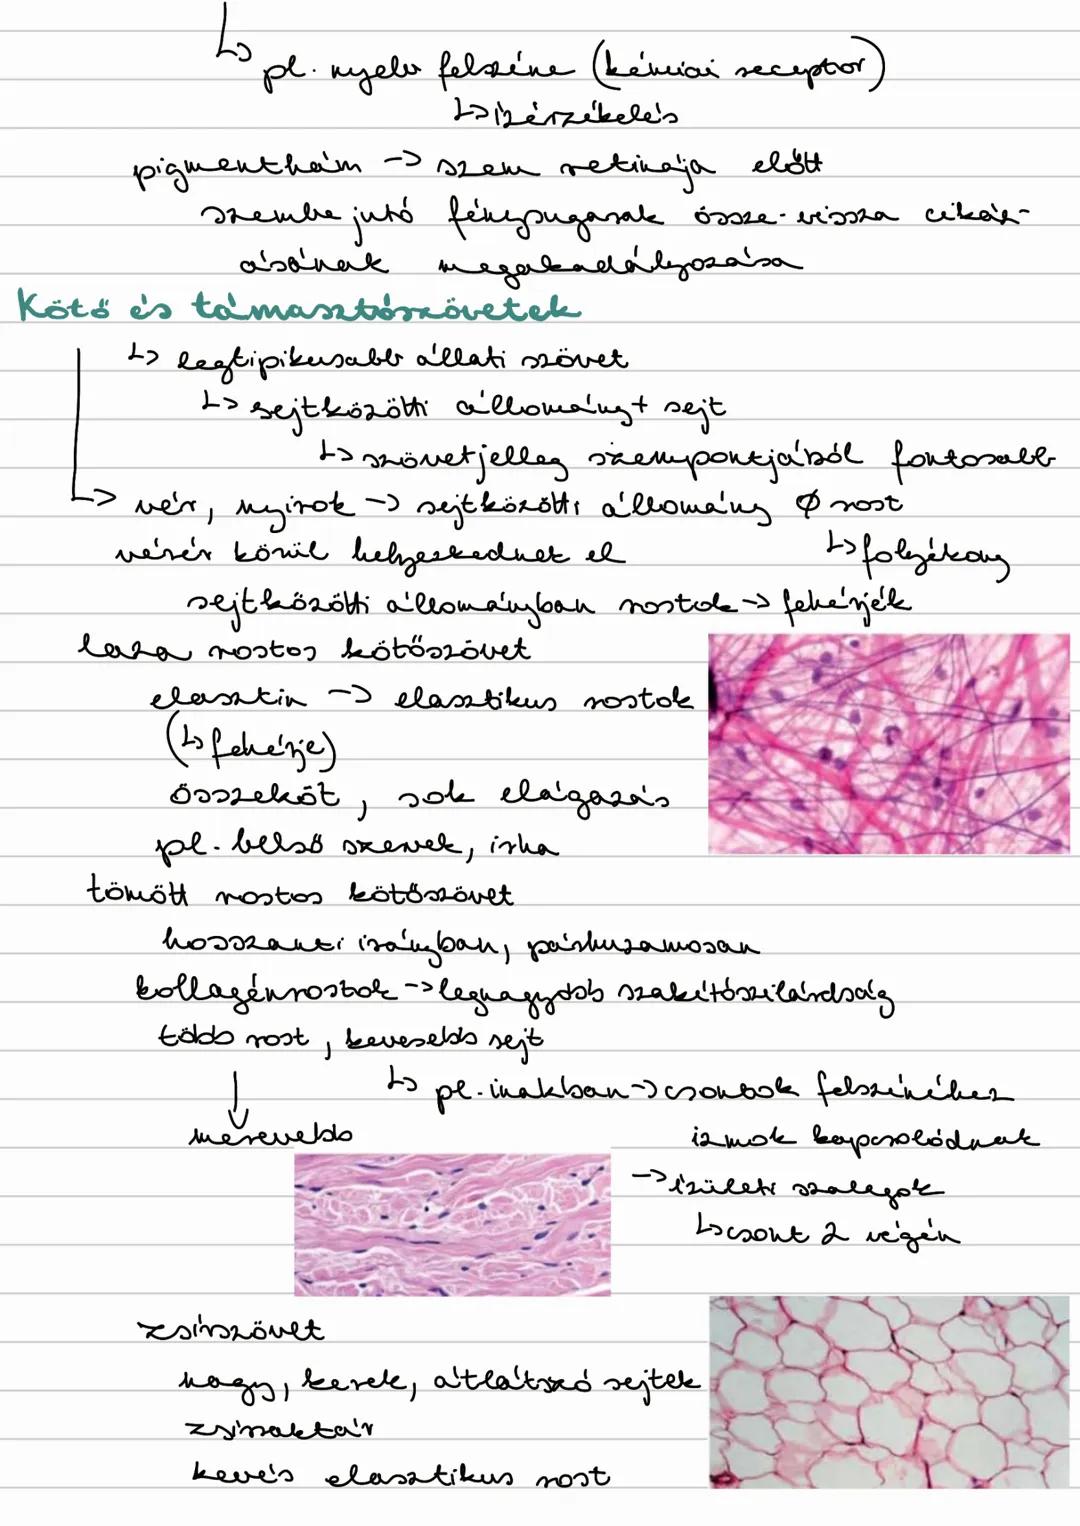 ↳ pl. nyelv felszíne (kémiai receptor)
↳ ízérzékelés
pigmenthám → szem retinája előtt
szembe jutó fénysugarak össze-vissza cikáz-
ásának megakadályozása
Kötő és támasztószövetek
↳ legtipikusabb állati szövet
↳ sejtközötti állomány + sejt
↳ szövetjelleg szempontjából fontosabb
↳ vér, nyirok → sejtközötti állomány Ø rost
vérér körül helyezkednek el ↳ folyékony
sejtközötti állományban rostok → fehérjék
laza rostos kötőszövet
elasztin → elasztikus rostok
(↳ fehérje)
összeköt, sok elágazás
pl. belső szervek, irha
tömött rostos kötőszövet
hosszanti irányban, párhuzamosan
kollagénrostok → legnagyobb szakítószilárdság
több rost, kevesebb sejt
↳ pl. inakban → csontok felszínéhez
merevebb izmok kapcsolódnak
→ ízületi szalagok
↳ csont 2 végén
zsírszövet
nagy, kerek, átlátszó sejtek
zsírraktár
kevés elasztikus rost